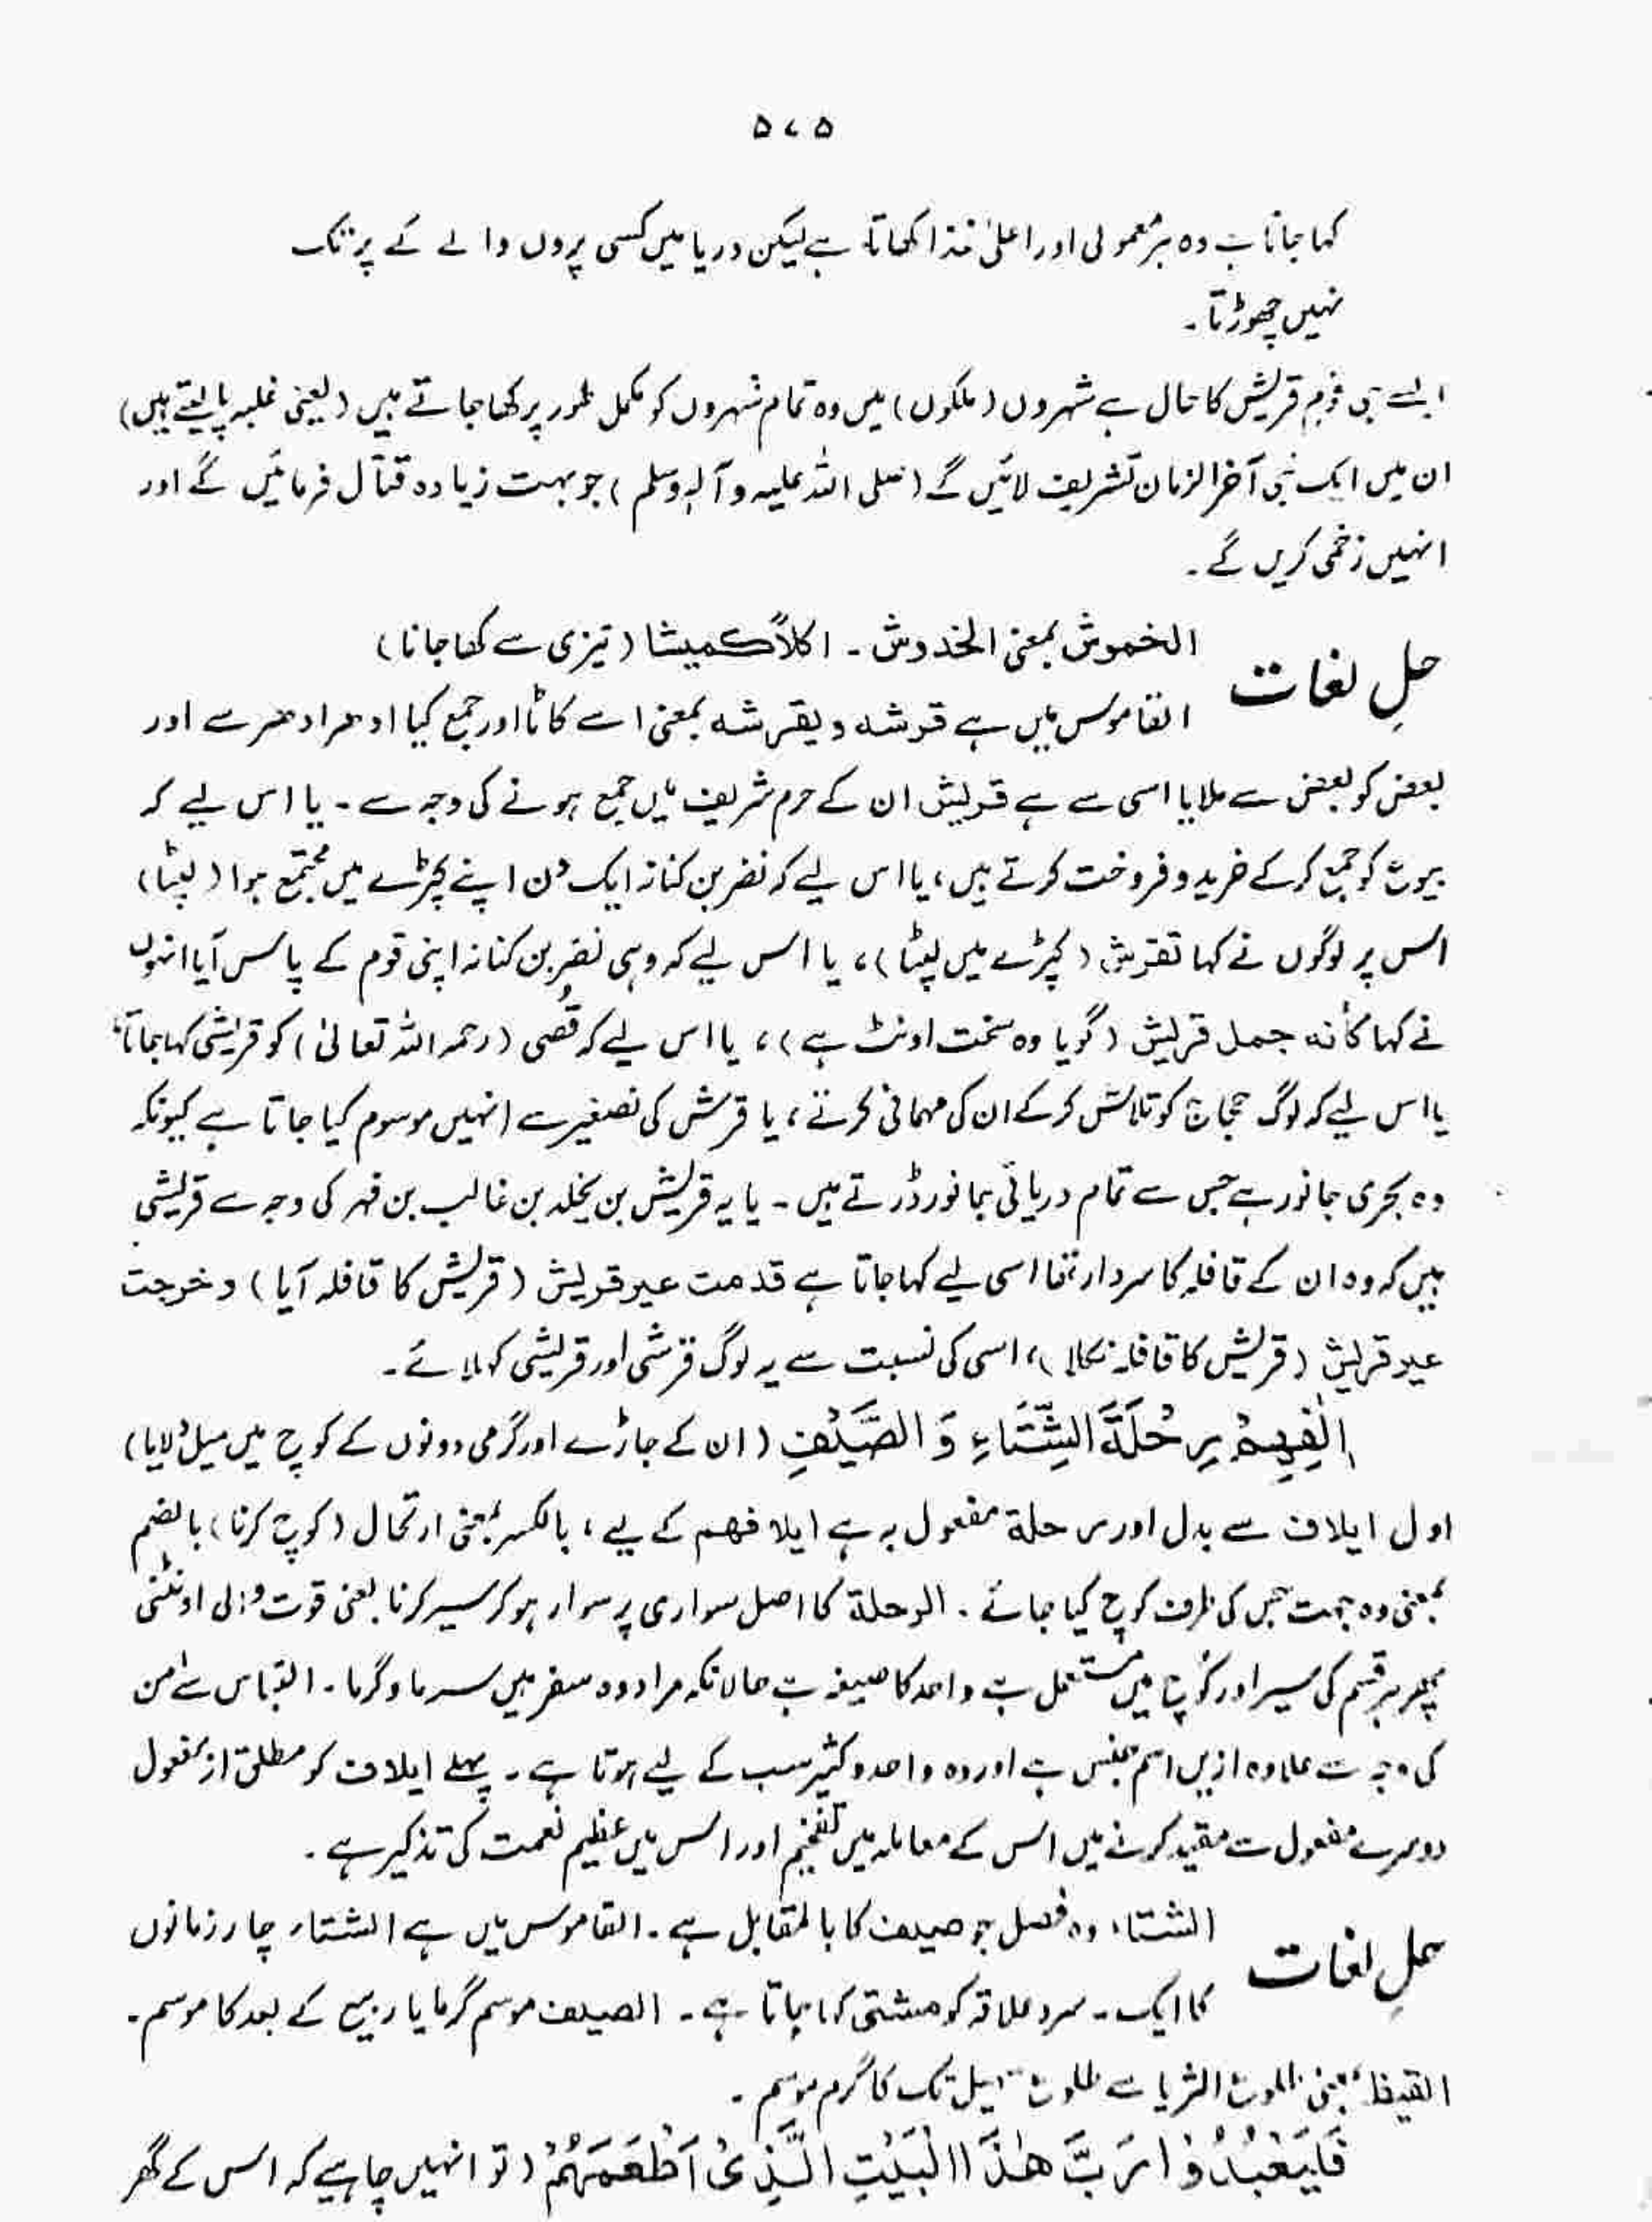 ۵۷۵
کہا جاتا ہے وہ ہر معمولی اور اعلیٰ غذا کھاتا ہے لیکن دریا میں کسی پروں والے کے پر تک
نہیں چھوڑتا۔
ایسے ہی قوم قریش کا حال ہے شہروں (ملکوں) میں وہ تمام شہروں کو مکمل طور پر کھا جاتے ہیں (یعنی غلبہ پا لیتے ہیں)
ان میں ایک نبی آخر الزمان تشریف لائیں گے (صلی اللہ علیہ وآلہٖ وسلم) جو بہت زیادہ قتال فرمائیں گے اور
انہیں زخمی کریں گے۔
حلِ لغات الخموش بمعنی الخدوش۔ اکلاً کمیشا (تیزی سے کھا جانا)
القاموس میں ہے قرشه و یقرشه بمعنی اسے کاٹا اور جمع کیا ادھر ادھر سے اور
بعض کو بعض سے ملایا اسی سے ہے قریش ان کے حرم شریف میں جمع ہونے کی وجہ سے۔ یا اس لیے کہ
بیوع کو جمع کر کے خرید و فروخت کرتے ہیں، یا اس لیے کہ نضر بن کنانہ ایک دن اپنے کپڑے میں مجتمع ہوا (لپٹا)
اس پر لوگوں نے کہا تقرش (کپڑے میں لپٹا)، یا اس لیے کہ وہی نضر بن کنانہ اپنی قوم کے پاس آیا انہوں
نے کہا کأنه جمل قریش (گویا وہ سخت اونٹ ہے)، یا اس لیے کہ قُصی (رحمہ اللہ تعالیٰ) کو قریشی کہا جاتا
یا اس لیے کہ لوگ حجاج کو تلاش کر کے ان کی مہمانی کرتے، یا قرش کی تصغیر سے انہیں موسوم کیا جاتا ہے کیونکہ
وہ بحری جانور ہے جس سے تمام دریائی جانور ڈرتے ہیں۔ یا یہ قریش بن یخلد بن غالب بن فہر کی وجہ سے قریشی
ہیں کہ وہ ان کے قافلہ کا سردار تھا اسی لیے کہا جاتا ہے قدمت عیر قریش (قریش کا قافلہ آیا) و خرجت
عیر قریش (قریش کا قافلہ نکلا)، اسی کی نسبت سے یہ لوگ قرشی اور قریشی کہلائے۔
اٖلٰفِهِمْ رِحْلَةَ الشِّتَاءِ وَ الصَّيْفِ (ان کے جاڑے اور گرمی دونوں کے کوچ میں میل دلایا)
اول ایلاف سے بدل اور رحلة مفعول بہ ہے ایلافهم کے لیے، بالکسر بمعنی ارتحال (کوچ کرنا) بالضم
بمعنی وہ جہت جس کی طرف کوچ کیا جائے۔ الرحلة کا اصل سواری پر سوار ہو کر سیر کرنا یعنی قوت والی اونٹنی
پھر ہر قسم کی سیر اور کوچ میں مستعمل ہے واحد کا صیغہ ہے حالانکہ مراد وہ سفر ہیں سرما و گرما۔ التباس سے امن
کی وجہ سے علاوہ ازیں اسم جنس ہے اور وہ واحد و کثیر سب کے لیے ہوتا ہے۔ پہلے ایلاف کو مطلق از مفعول
دوسرے مفعول سے مقید کرنے میں اس کے معاملہ میں تفخیم اور اس میں عظیم نعمت کی تذکیر ہے۔
حلِ لغات الشتاء وہ فصل جو صیف کا بالمقابل ہے۔ القاموس میں ہے الشتاء چار زمانوں
کا ایک۔ سرد علاقہ کو مشتی کہا جاتا ہے۔ الصیف موسم گرما یا ربیع کے بعد کا موسم۔
القیظ بمعنی طلوع الثریا سے طلوع سہیل تک کا گرم موسم۔
فَلْيَعْبُدُوْا رَبَّ هٰذَا الْبَيْتِ الَّذِیْ اَطْعَمَهُمْ (تو انہیں چاہیے کہ اس کے گھر